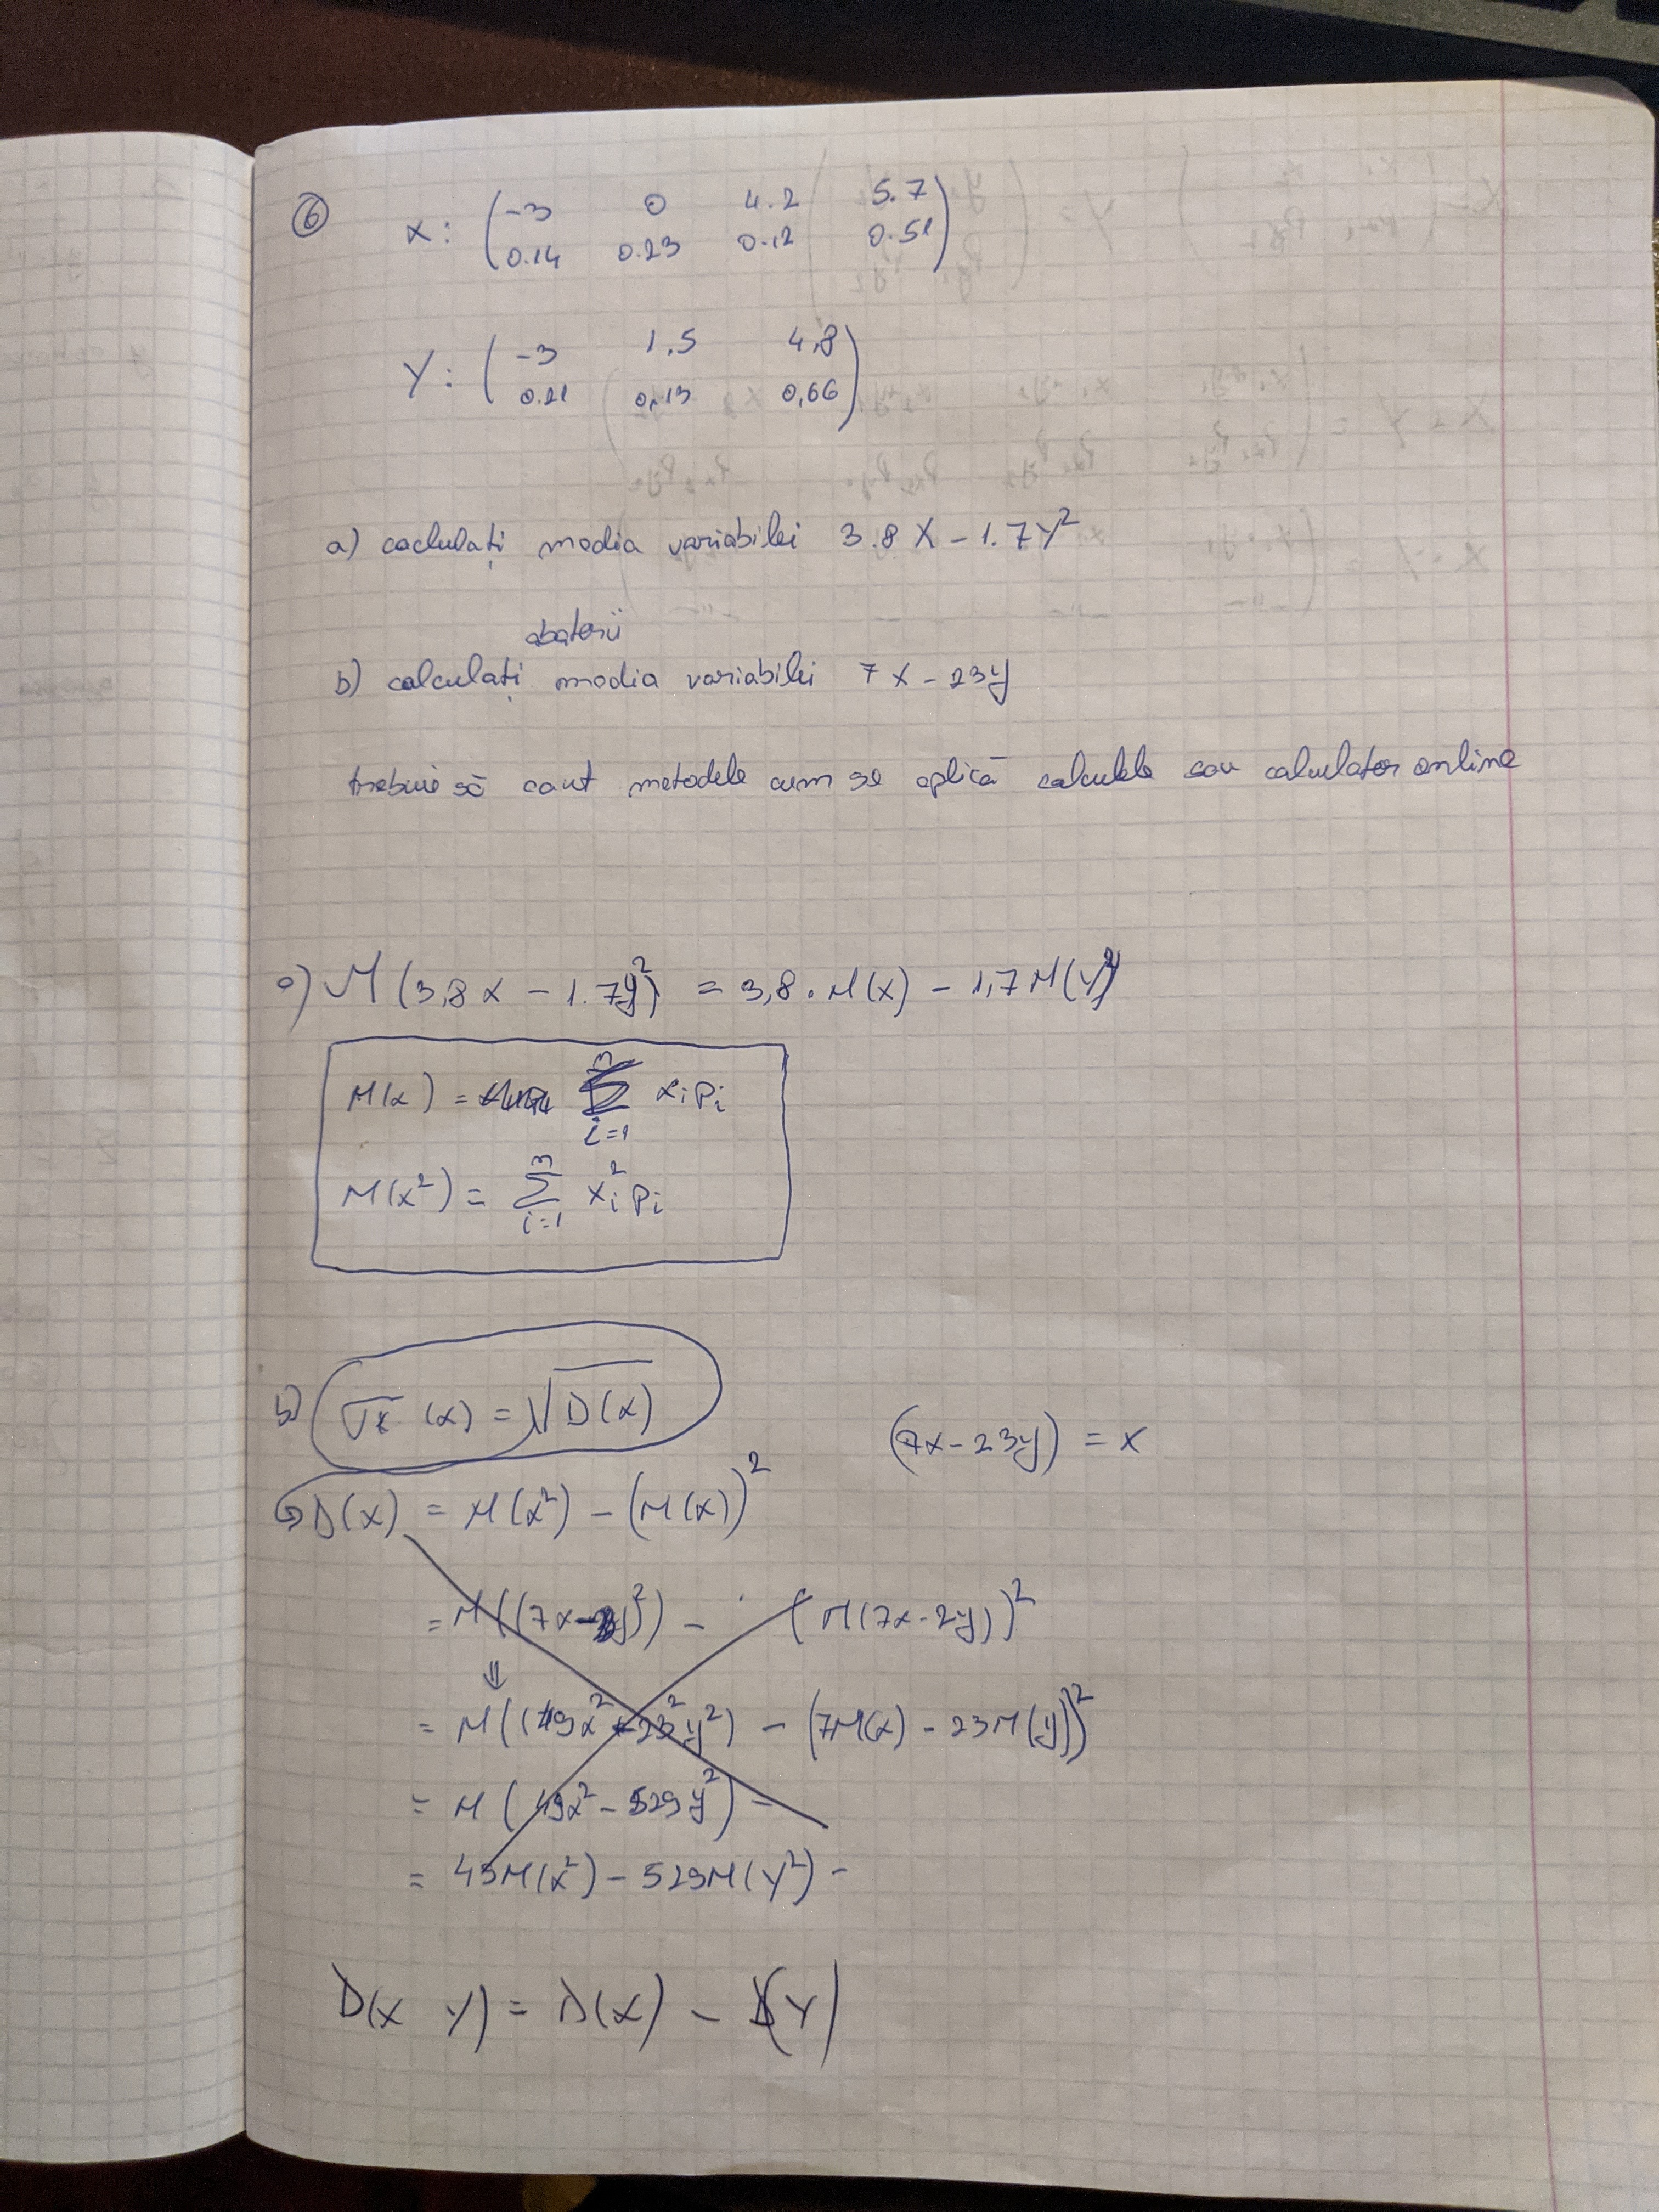 6
X: ( -3 0 4.2 5.7 )
( 0.14 0.23 0.12 0.51 )
Y: ( -3 1,5 4,8 )
( 0.21 0,13 0,66 )
a) caclulați media variabilei 3.8 X - 1.7 Y²
abaterii
b) calculați media variabilei 7x - 23y
trebuie să caut metodele cum se aplică calculele sau calculator online
a) M(3,8x - 1.7y²) = 3,8 · M(x) - 1,7 M(Y²)
M(x) = Σ i=1 n xi pi
M(x²) = Σ i=1 n xi² pi
b) (x) = √D(x)
(7x - 23y) = x
D(x) = M(x²) - (M(x))²
= M((7x - y)²) - (M(7x - 2y))²
⇓
= M((49x² - 23²y²) - (7M(x) - 23M(y))²
= M(49x² - 529y²) -
= 49M(x²) - 529M(Y²) -
D(X Y) = D(X) - D(Y)